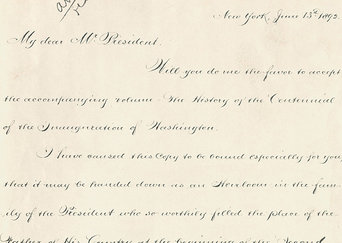 New York, June 13th 1892.
My dear Mr. President.
Will you do me the favor to accept
the accompanying volume - The History of the Centennial
of the Inauguration of Washington.
I have caused this Copy to be bound especially for you,
that it may be handed down as an Heirloom in the fam-
ily of the President who so worthily filled the place of the
Father of His Country at the beginning of the Second